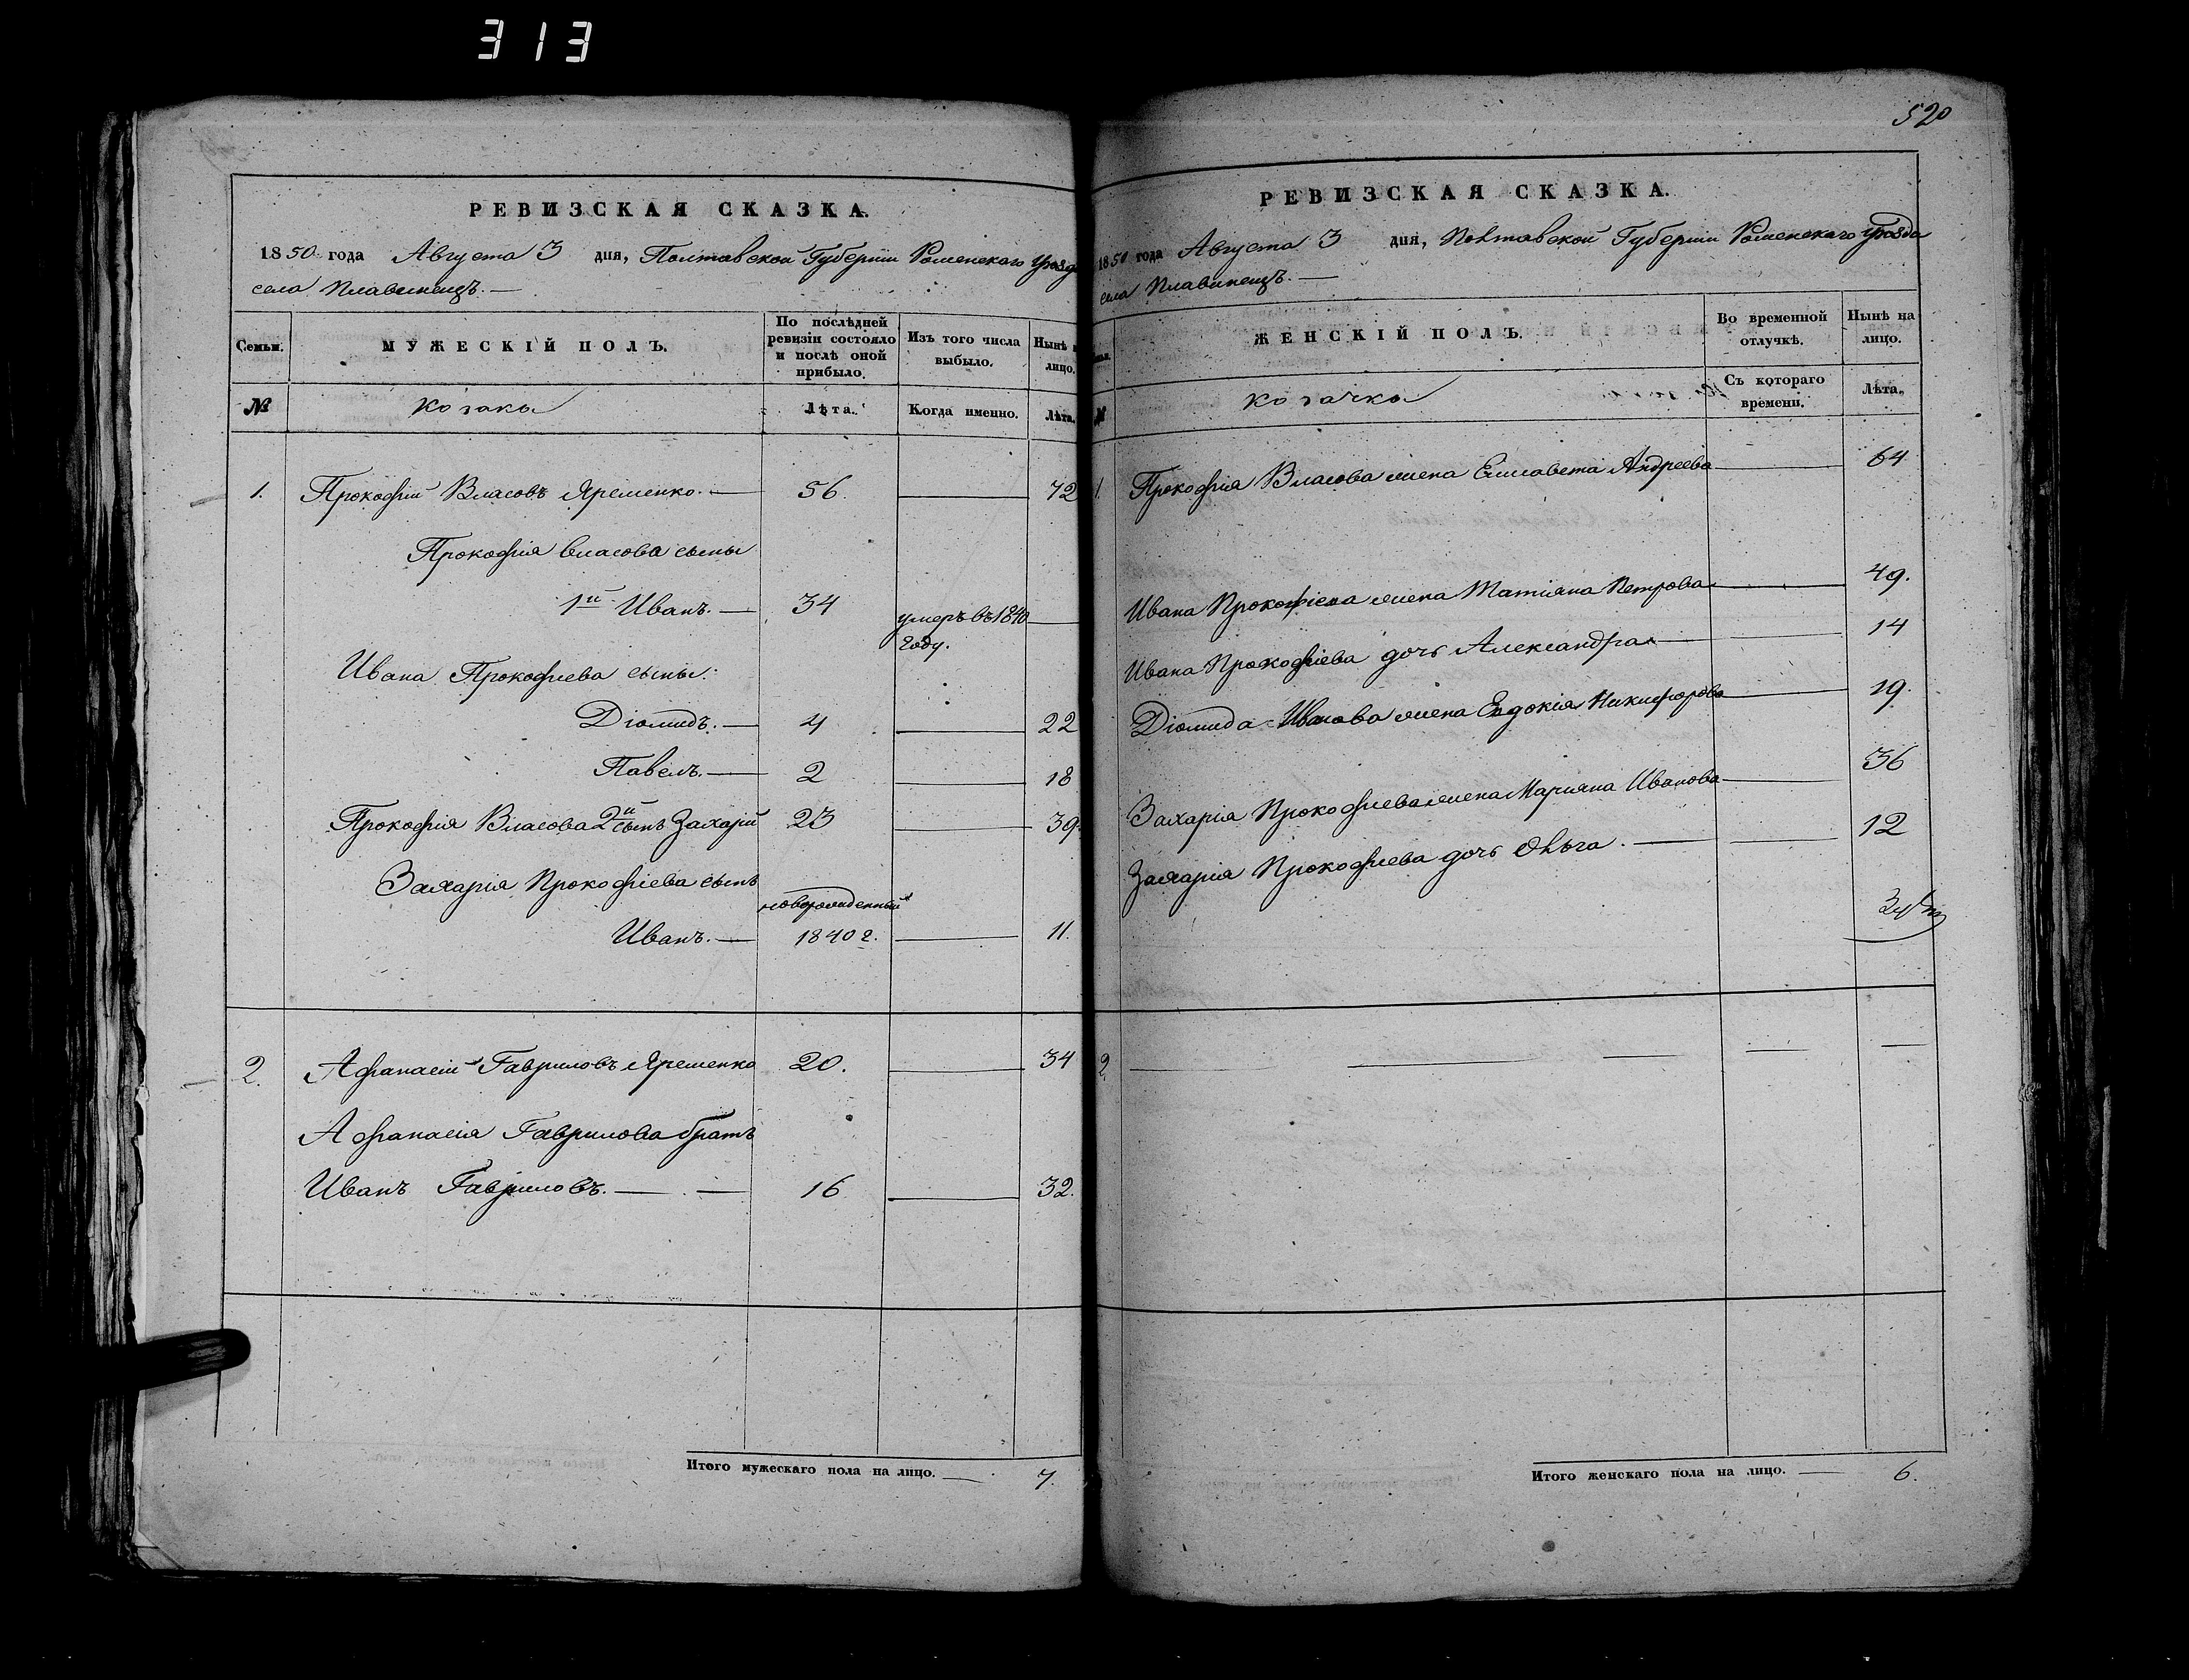 313
520
РЕВИЗСКАЯ СКАЗКА.
1850 года Августа 3 дня, Полтавской Губернiи Роменскаго Уѣзда
села Плавинещъ.
Семьи. МУЖЕСКIЙ ПОЛЪ. По послѣдней ревизiи состояло и послѣ оной прибыло. Изъ того числа выбыло. Нынѣ н лицо.
№ козаки Лѣта. Когда именно. Лѣта.
1. Прокофiй Власовъ Яременко. 56. 72
Прокофiя Власова сыны
1й Иванъ. 34 умеръ въ 1840 году.
Ивана Прокофiева сыны:
Дiомидъ. 4 22
Павелъ. 2 18
Прокофiя Власова 2й сынъ Захарiй 23 39.
Захарiя Прокофiева сынъ
новорожденный
Иванъ. 1840 г. 11.
2. Афанасiй Гавриловъ Яременко 20. 34
Афанасiя Гаврилова братъ
Иванъ Гавриловъ. 16 32.
Итого мужескаго пола на лицо. 7.
РЕВИЗСКАЯ СКАЗКА.
1850 года Августа 3 дня, Полтавской Губернiи Роменскаго Уѣзда
села Плавинещъ.
ЖЕНСКIЙ ПОЛЪ. Во временной отлучкѣ. Нынѣ на лицо.
№ козачки Съ котораго времени. Лѣта.
1. Прокофiя Власова жена Елисавета Андреева 64
Ивана Прокофiева жена Татiяна Петрова 49.
Ивана Прокофiева дочь Александра 14
Дiомида Иванова жена Евдокiя Никифорова 19.
Захарiя Прокофiева жена Марiяна Иванова 36
Захарiя Прокофiева дочь Ольга. 12
2.
Итого женскаго пола на лицо. 6.